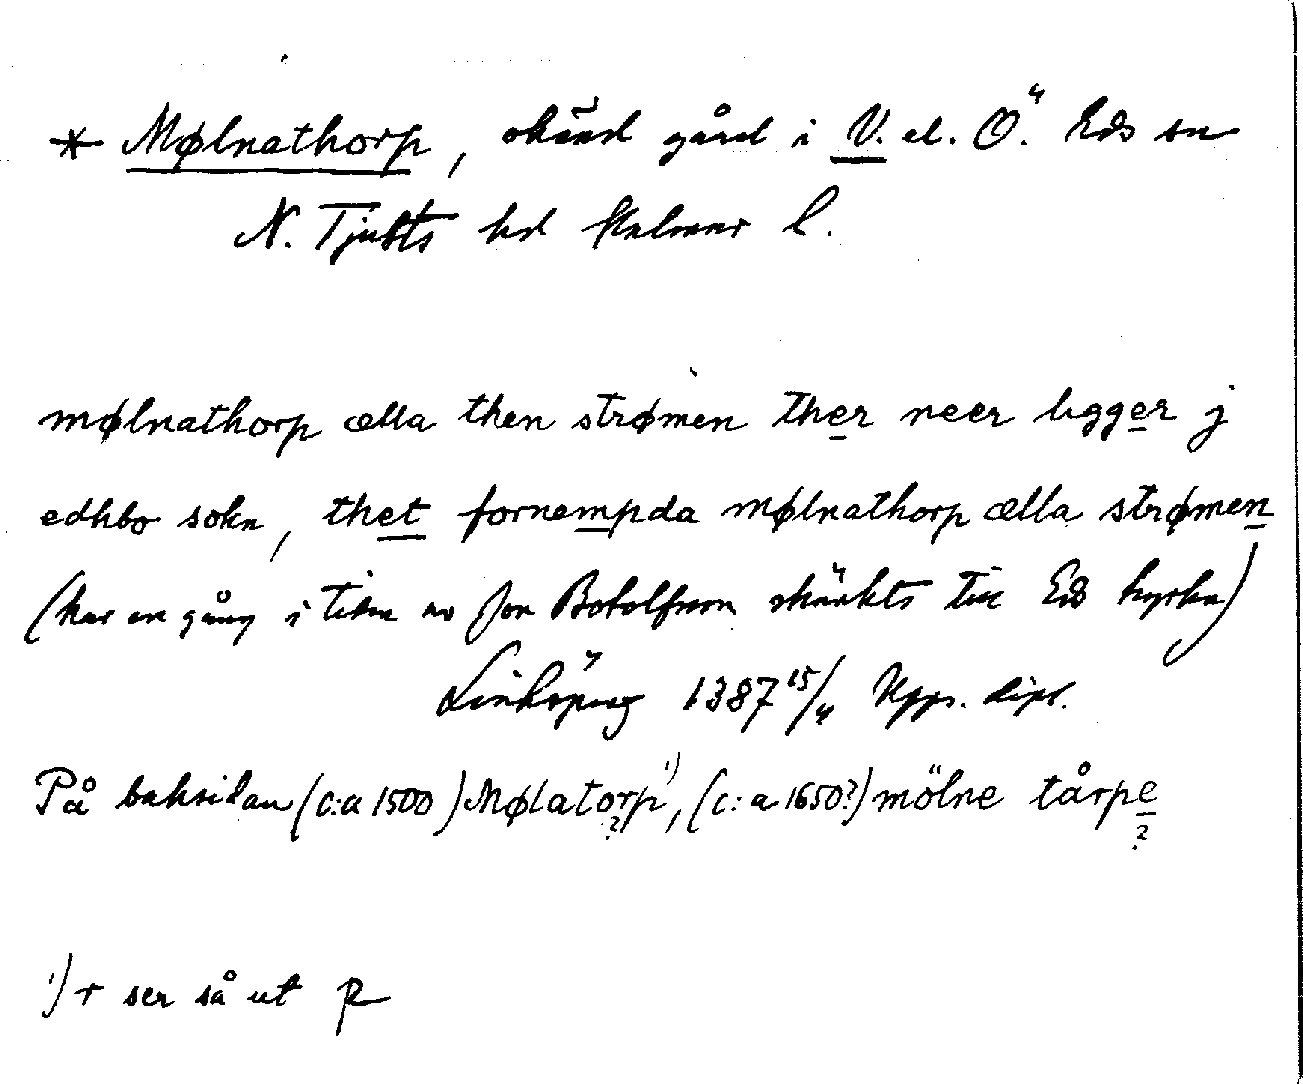 * Mølnathorp, okänd gård i V. el. Ö. Eds sn
N. Tjusts hd Kalmar l.
mølnathorp ælla then strømen ther neer ligger j
edhbo sokn, thet fornempda mølnathorp ælla strømen
(har en gång i tiden av Jon Botolfsson skänkts till Eds kyrka)
Linköping 1387 15/4 Upps. dipl.
På baksidan (c:a 1500) Mølatorp 1), (c:a 1650?) mölne tårpe
? ?
1) r ser så ut